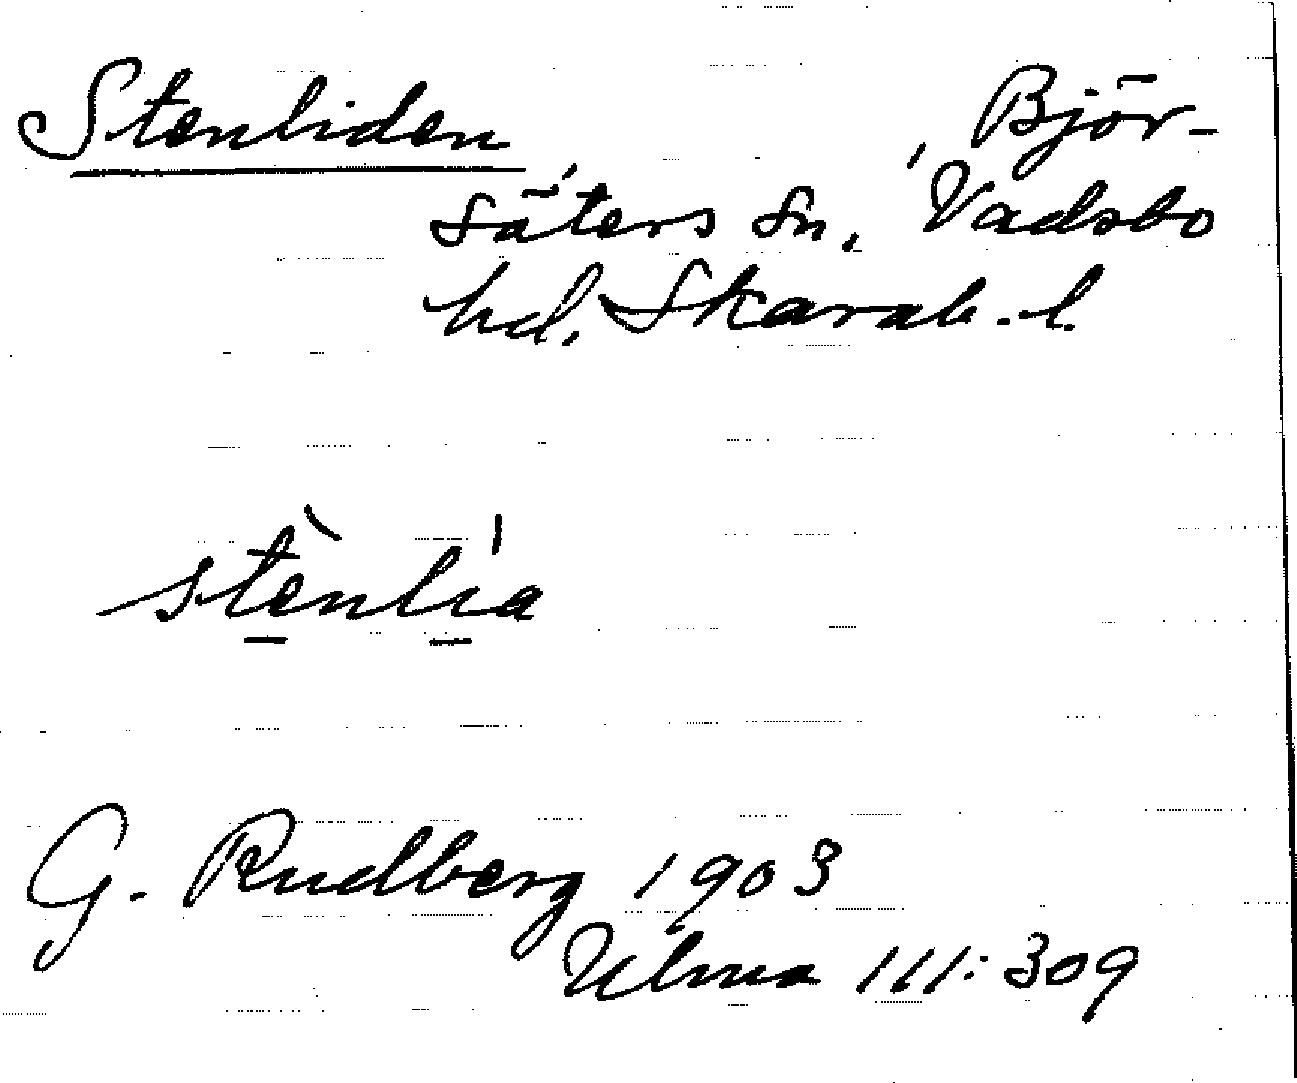 Stenliden, Björ-
säters sn, Vadsbo
hd. Skarab. l.
stènlía
G. Rudberg 1903
Ulma 111:309